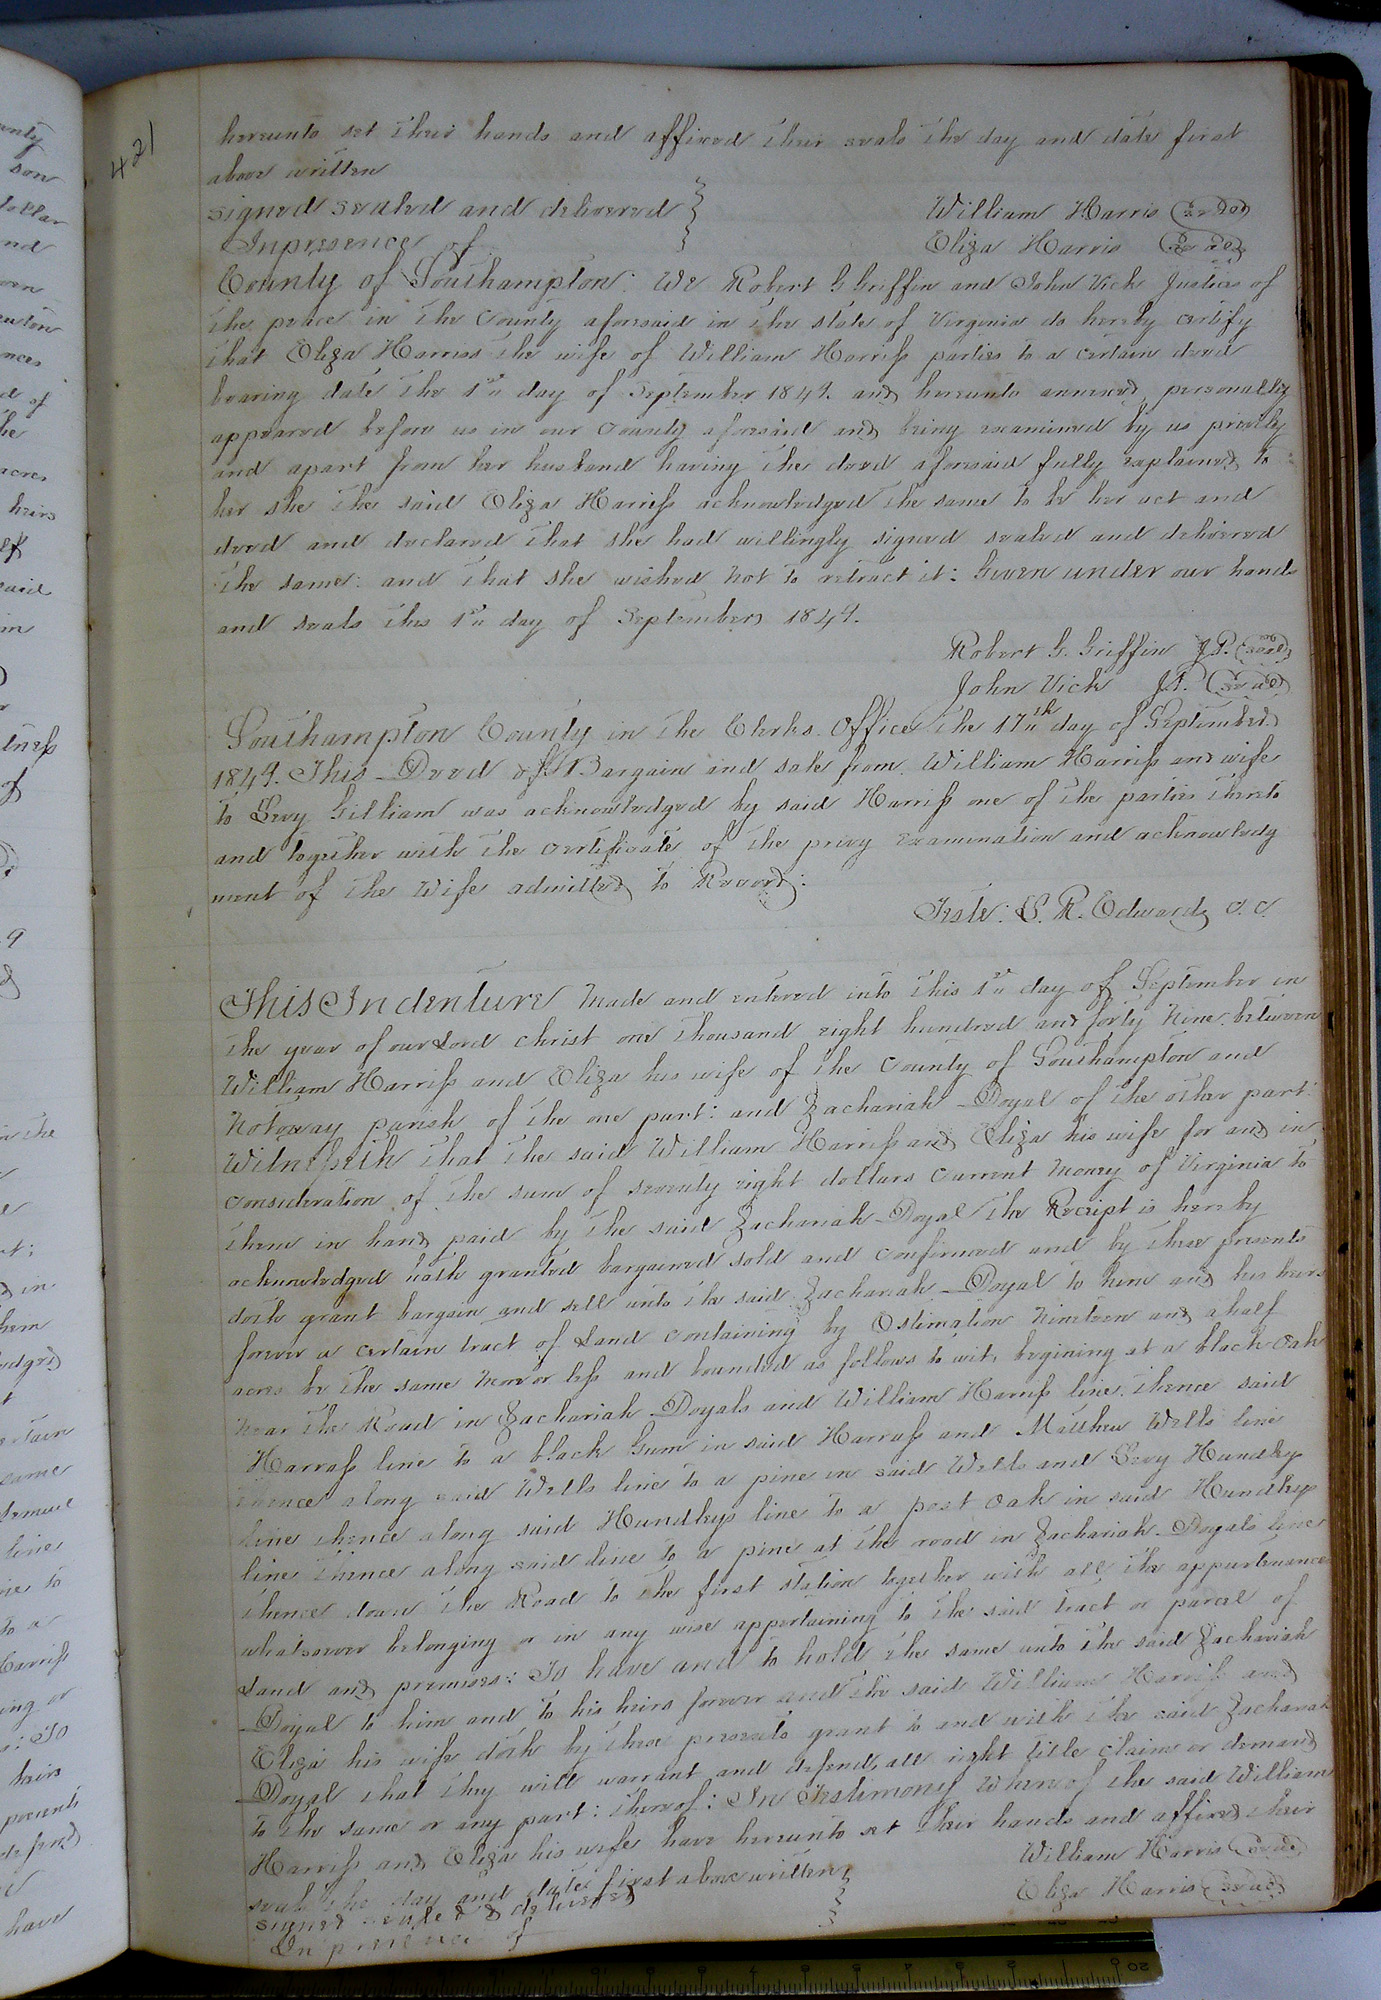 421
hereunto set their hands and affixed their seals the day and date first
above written
signed sealed and delivered
William Harris (Sealed)
In presence of
Eliza Harris (Sealed)
County of Southampton: We Robert G Griffin and John Vick Justices of
the peace in the County aforesaid in the state of Virginia do hereby certify
that Eliza Harriss the wife of William Harriss parties to a certain deed
bearing date the 1st day of September 1849. and hereunto annexed, personally
appeared before us in our County aforesaid and being examined by us privily
and apart from her husband having the deed aforesaid fully explained to
her she the said Eliza Harriss acknowledged the same to be her act and
deed and declared that she had willingly signed sealed and delivered
the same: and that she wished not to retract it: Given under our hands
and seals this 1st day of September 1849.
Robert G. Griffin J.P. (seal)
John Vick J.P. (Sealed)
Southampton County in the Clerks Office the 17th day of September
1849. This Deed of Bargain and sale from William Harriss and wife
to Levy Gilliam was acknowledged by said Harriss one of the parties thereto
and together with the certificate of the privy examination and acknowledg
ment of the Wife admitted to Record:
Teste: L. R. Edwards C.C.
This Indenture Made and entered into this 1st day of September in
the year of our Lord Christ one thousand eight hundred and forty Nine between
William Harriss and Eliza his wife of the County of Southampton and
Notoway parish of the one part: and Zachariah Doyal of the other part:
Witnesseth that the said William Harriss and Eliza his wife for and in
consideration of the sum of seventy eight dollars current money of Virginia to
them in hand paid by the said Zachariah Doyal the Receipt is hereby
acknowledged hath granted bargained sold and confirmed and by these presents
doth grant bargain and sell unto the said Zachariah Doyal to him and his heirs
forever a certain tract of Land containing by Estimation Nineteen and a half
acres be the same more or less and bounded as follows to wit, begining at a black Oak
near the Road in Zachariah Doyals and William Harriss line. thence said
Harrass line to a black Gum in said Harrass and Matthew Wells line
thence along said Wells line to a pine in said Wells and Levy Hundley
line thence along said Hundleys line to a post Oak in said Hundleys
line thence along said line to a pine at the road in Zachariah Doyals line
thence down the Road to the first station together with all the appurtenances
whatsoever belonging or in any wise appertaining to the said tract or parcel of
Land and premises: To have and to hold the same unto the said Zachariah
Doyal to him and to his heirs forever and the said William Harriss and
Eliza his wife doth by these presents grant to and with the said Zachariah
Doyal that they will warrant and defend, all right title claim or demand
to the same or any part: thereof: In Testimony Whereof the said William
Harriss and Eliza his wife have hereunto set their hands and affixed their
seals the day and date first above written
William Harris (Sealed)
signed sealed & delivered
Eliza Harris (Sealed)
In presence of